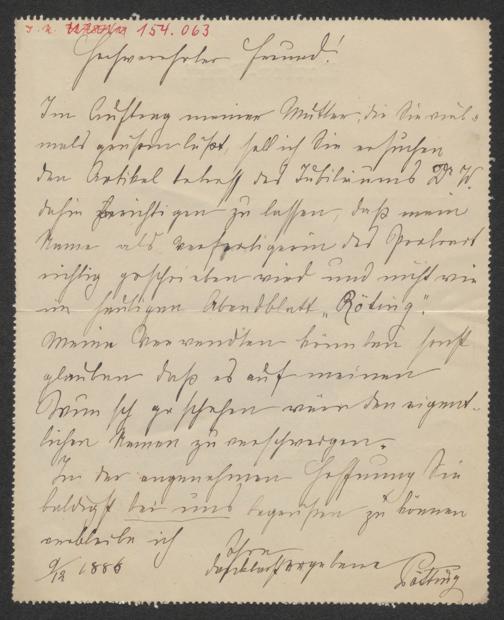 I. N. 154.063
Hochverehrter Freund!
Im Auftrag meiner Mutter, die Sie viel-
mals grüssen lässt, soll ich Sie ersuchen
den Artikel betreff des Jubiläums Dr W.
dahin berichtigen zu lassen, daß mein
Name als Verfertigerin des Portrait
richtig geschrieben wird und nicht wie
im heutigen Abendblatt „Röting".
Meine Verwandten könnten sonst
glauben daß es auf meinen
Wunsch geschehen wäre den eigent-
lichen Namen zu verschweigen.
In der angenehmen Hoffnung Sie
baldigst bei uns begrüßen zu können
verbleibe ich
Ihre
ergebene
9/12 1886
Pötting